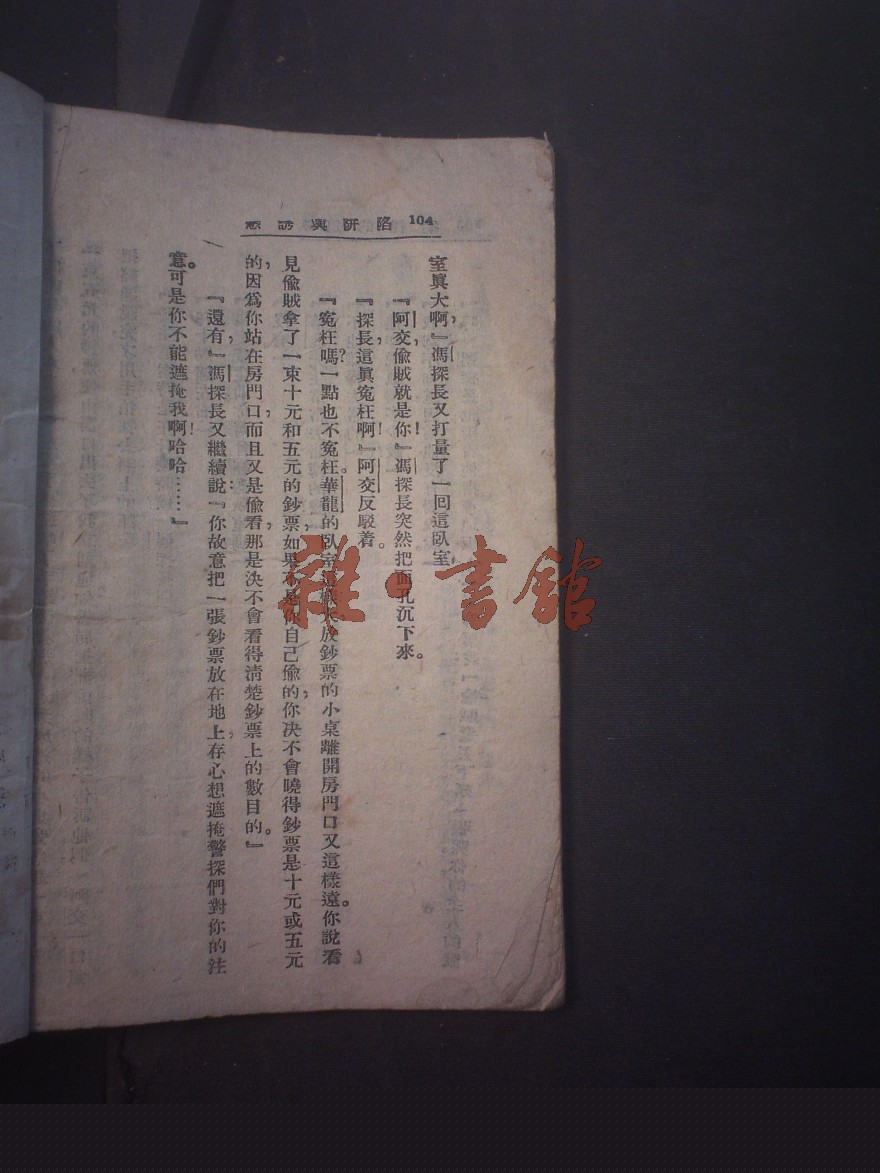 104 陷阱與誘惑
室眞大啊，』馮探長又打量了一回這臥室，
『阿交，偸賊就是你！』馮探長突然把面孔沉下來。
『探長，這眞冤枉啊！』阿交反駁着。
『冤枉嗎？一點也不冤枉。華龍的臥室這放鈔票的小桌離開房門口又這樣遠。你說看
見偸賊拿了一束十元和五元的鈔票，如果不是你自己偸的，你决不會曉得鈔票是十元或五元
的，因爲你站在房門口，而且又是偸看，那是決不會看得淸楚鈔票上的數目的。』
『還有，』馮探長又繼續說：『你故意把一張鈔票放在地上，存心想遮掩警探們對你的注
意。可是你不能遮掩我啊！哈哈……』
雜·書館